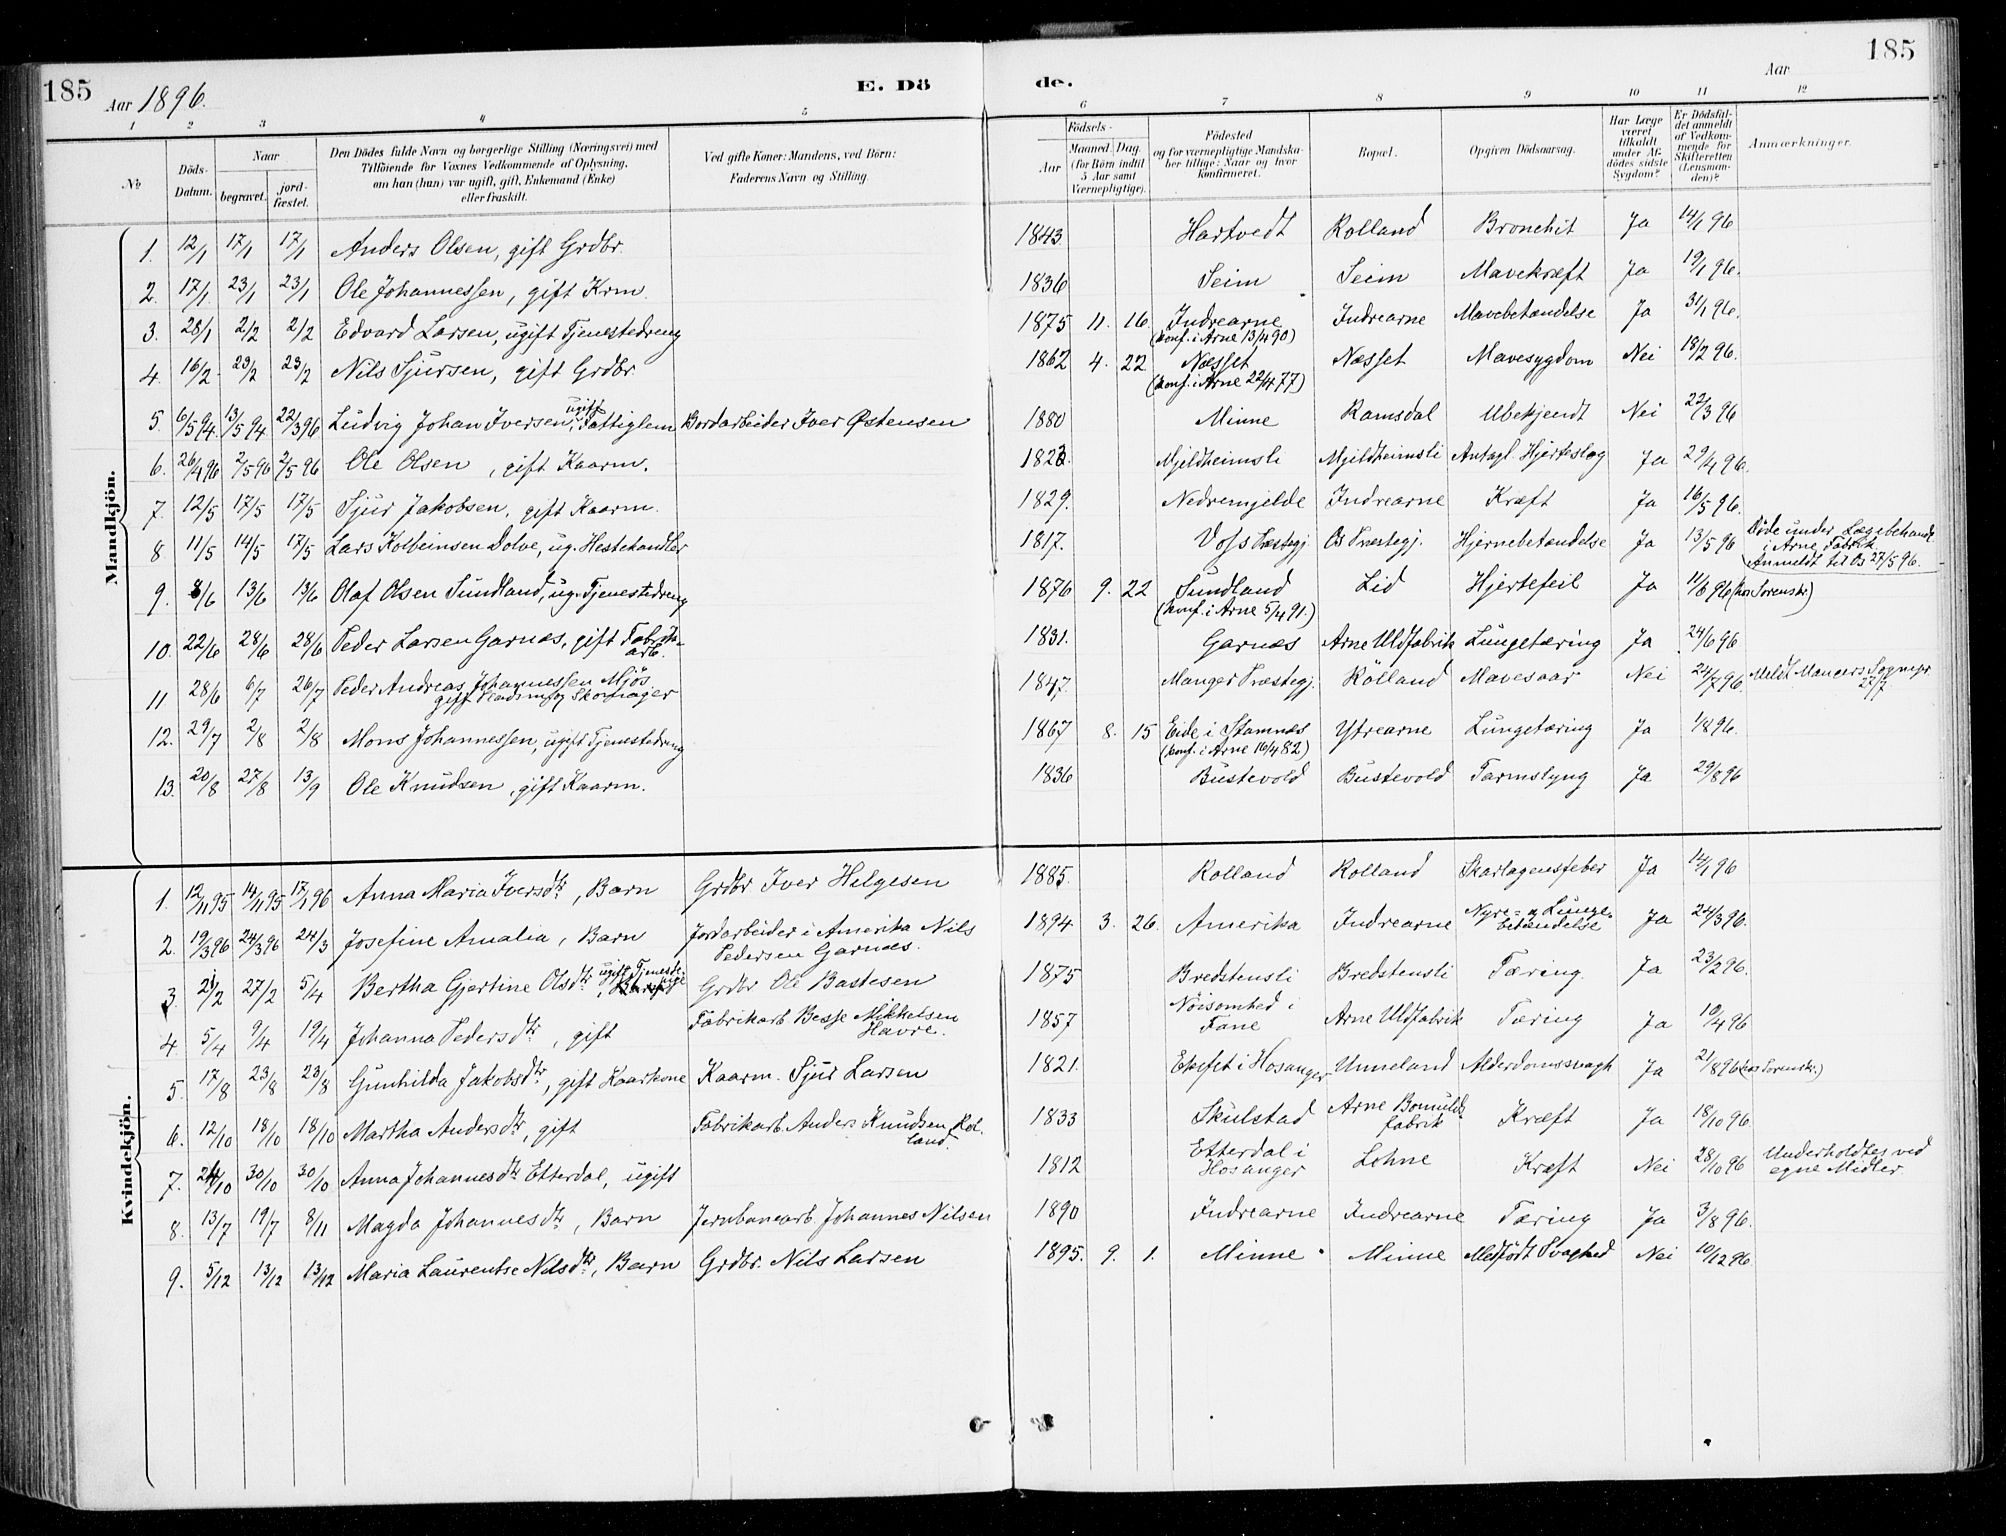 185
Aar 1896.
E. Dö
de.
Aar
185
1 2 3 4 5 6 7 8 9 10 11 12
№
Döds-Datum.
Naar
begravet.
jord-fæstet.
Den Dödes fulde Navn og borgerlige Stilling (Næringsvei) med
Tilföiende for Voxnes Vedkommende af Oplysning,
om han (hun) var ugift, gift, Enkemand (Enke)
eller fraskilt.
Ved gifte Koner: Mandens, ved Börn:
Faderens Navn og Stilling
Födsels-
Aar
Maaned. Dag.
(for Börn indtil
5 Aar samt
Værnepligtige).
Födested
og for værnepligtige Mandska-
ber tillige: Naar og hvor
konfirmeret.
Bopæl.
Opgiven Dödsaarsag.
Har Læge
været
tilkaldt
under Af-
dödes sidste
Sygdom?
Er Dödsfal-
det anmeldt
af Vedkom-
mende for
Skifteretten
(Lensman-
den)?
Anmærkninger.
Mandkjön.
1. 12/1 17/1 17/1 Anders Olsen, gift Grdbr. 1843. Hartvedt Rolland Bronchit Ja 14/1 96
2. 17/1 23/1 23/1 Ole Johannessen, gift Krm. 1836 Seim Seim Mavekræft Ja 19/1 96.
3. 28/1 2/2 2/2 Edvard Larsen, ugift Tjenestedreng 1875 11. 16. Indrearne Indrearne Mavebetændelse Ja 31/1 96.
(konf. i Arne 13/4 90)
4. 16/2 23/2 23/2 Nils Sjursen, gift Grdbr. 1862 4. 22 Næsset Næsset Mavesygdom Nei 18/2 96.
(konf. i Arne 22/4 77)
5. 6/5 94. 13/5 94 22/3 96 Ludvig Johan Iversen, ugift Fattiglem Bordarbeider Iver Østensen 1880 Minne Ramsdal Ubekjendt Nei 22/3 96
6. 26/4 96 2/5 96 2/5 96 Ole Olsen, gift Kaarm. Mjeldheimsli Mjeldheimsli Antagl. Hjerteslag Ja 29/4 96.
7. 12/5 17/5 17/5 Sjur Jakobsen, gift Kaarm. 1829. Nedremjelde Indrearne Kræft Ja 16/5 96.
8. 11/5 14/5 17/5 Lars Kolbeinsen Dolve, ug. Hestehandler 1817. Voss Præstegj. Os Præstegj. Hjernebetændelse Ja 13/5 96 Døde under Lægebehandl.
i Arne Fabrik.
Anmeldt til Os 27/5 96.
9. 8/6 13/6 13/6 Olaf Olsen Sundland, ug. Tjenestedreng 1876 9. 22 Sundland Lid Hjertefeil Ja 11/6 96 (hos Sorenskr.)
(konf. i Arne 5/4 91.)
10. 22/6 28/6 28/6 Peder Larsen Garnæs, gift Fabrik-
arb. 1831. Garnæs Arne Uldfabrik Lungetæring Ja 24/6 96
11 28/6 6/7 26/7 Peder Andreas Johannessen Mjös
gift Pladsm. og Skomager 1847. Manger Præstegj. Rolland Mavesaar Nei 24/7 96. Meldt Mangers Sognepr.
27/7.
12. 29/7 2/8 2/8 Mons Johannessen, ugift Tjenestedreng 1867 8. 15 Eide i Stamnæs Ytrearne Lungetæring Ja 1/8 96.
(konf. i Arne 16/4 82)
13. 20/8 27/8 13/9 Ole Knudsen, gift Kaarm. 1836 Bustevold Bustevold Tarmslyng Ja 29/8 96
Kvindekjön.
1. 12/11 95 14/11 95 17/1 96 Anna Maria Iversdtr, Barn Grdbr Iver Helgesen 1885. Rolland Rolland Skarlagensfeber Ja 14/1 96
2. 19/3 96 24/3 96 24/3 Josefine Amalia, Barn Jordarbeider i Amerika Nils
Pedersen Garnæs. 1894 3. 26. Amerika Indrearne Nyre- og Lunge-
betændelse Ja 24/3 96.
3. 21/2 27/2 5/4 Bertha Gjertine Olsdtr, ugift Tjenestepige Grdbr Ole Bastesen 1875 Bredstensli Bredstensli Tæring. Ja 23/2 96.
4 5/4 9/4 19/4 Johanna Pedersdtr, gift Fabrikarb. Besse Mikkelsen
Havre. 1857 Nöisomhed i
Fane Arne Uldfabrik Tæring Ja 10/4 96
5. 17/8 23/8 23/8 Gunhilda Jakobsdtr, gift Kaarkone Kaarm. Sjur Larsen 1821. Hosanger Unneland Alderdomssvagh Ja 21/8 96 (hos Sorenskr.)
6. 12/10 18/10 18/10 Martha Andersdtr, gift Fabrikarb. Anders Knudsen Rol-
land. 1833 Skulstad Arne Bomulds-
fabrik Kræft Ja 18/10 96.
7. 24/10 30/10 30/10 Anna Johannesdtr Etterdal, ugift 1812 Etterdal i
Hosanger Lohne Kræft Nei 28/10 96 Underholdtes ved
egne Midler.
8. 13/7 19/7 8/11 Magda Johannesdtr, Barn Jernbanearb. Johannes Nilsen 1890 Indrearne Indrearne Tæring Ja 3/8 96.
9. 5/12 13/12 13/12 Maria Laurentse Nilsdtr, Barn Grdbr. Nils Larsen 1895. 9. 1. Minne Minne Medfödt Svaghed Nei 10/12 96.